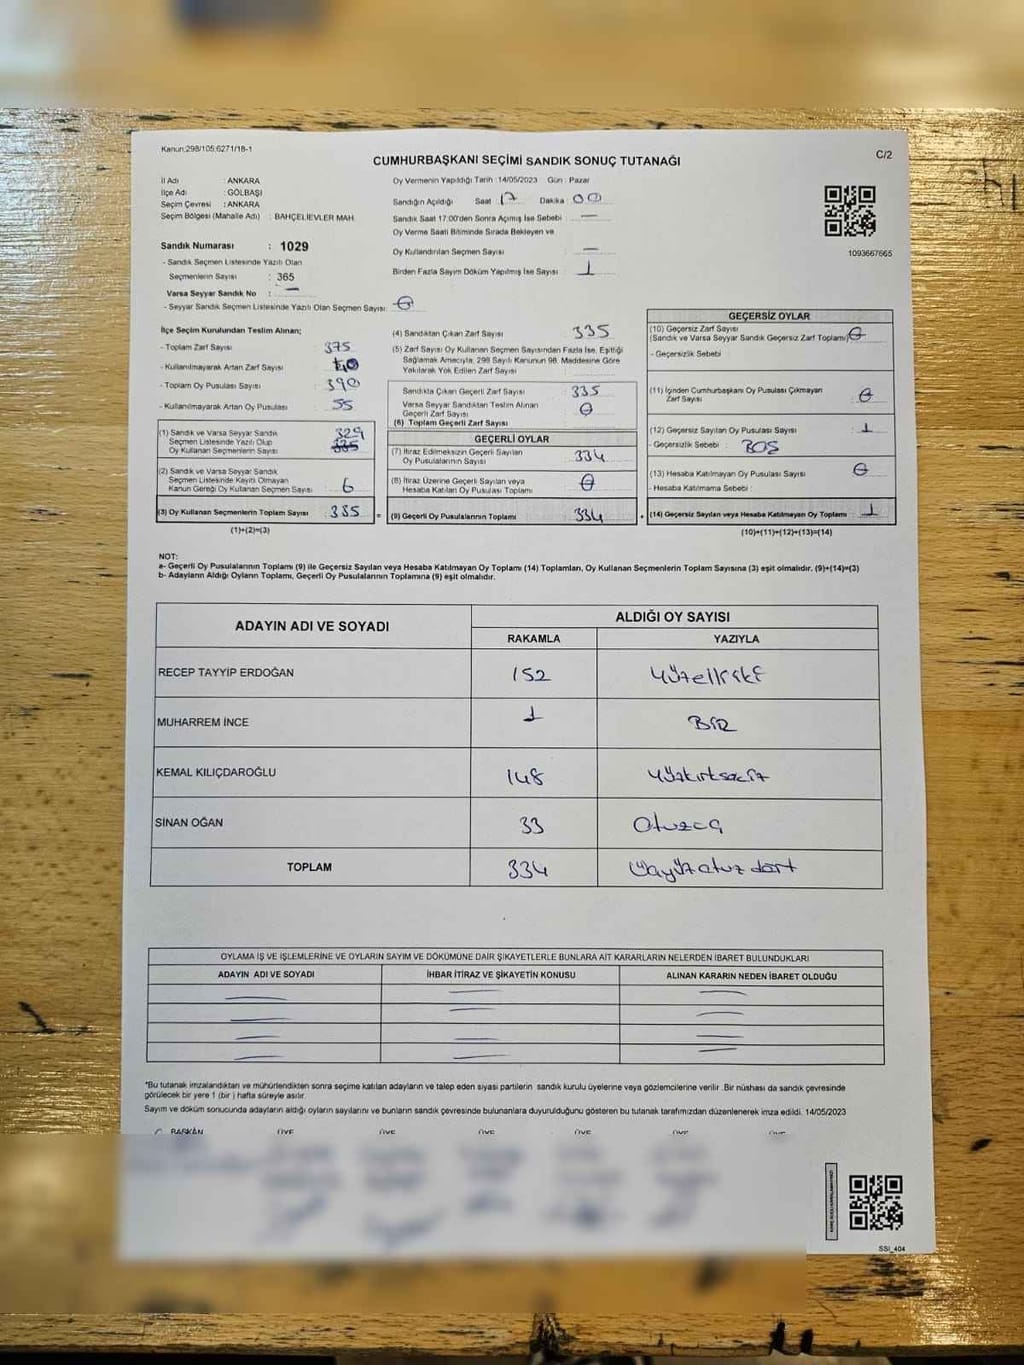 Kanun:298/105;6271/18-1
C/2
CUMHURBAŞKANI SEÇİMİ SANDIK SONUÇ TUTANAĞI
İl Adı : ANKARA
İlçe Adı : GÖLBAŞI
Seçim Çevresi : ANKARA
Seçim Bölgesi (Mahalle Adı) : BAHÇELİEVLER MAH.
Sandık Numarası : 1029
- Sandık Seçmen Listesinde Yazılı Olan
Seçmenlerin Sayısı : 365
Varsa Seyyar Sandık No : —
- Seyyar Sandık Seçmen Listesinde Yazılı Olan Seçmen Sayısı: 0
Oy Vermenin Yapıldığı Tarih :14/05/2023 Gün : Pazar
Sandığın Açıldığı Saat 17 Dakika 00
Sandık Saat 17:00'den Sonra Açımış İse Sebebi —
Oy Verme Saati Bitiminde Sırada Bekleyen ve
Oy Kullandırılan Seçmen Sayısı —
Birden Fazla Sayım Döküm Yapılmış İse Sayısı 1
1093667665
İlçe Seçim Kurulundan Teslim Alınan;
- Toplam Zarf Sayısı 375
- Kullanılmayarak Artan Zarf Sayısı 40
- Toplam Oy Pusulası Sayısı 390
- Kullanılmayarak Artan Oy Pusulası 55
(1) Sandık ve Varsa Seyyar Sandık
Seçmen Listesinde Yazılı Olup
Oy Kullanan Seçmenlerin Sayısı 329 335
(2) Sandık ve Varsa Seyyar Sandık
Seçmen Listesinde Kayıtlı Olmayan
Kanun Gereği Oy Kullanan Seçmen Sayısı 6
(3) Oy Kullanan Seçmenlerin Toplam Sayısı 335 =
(1)+(2)=(3)
(4) Sandıktan Çıkan Zarf Sayısı 335
(5) Zarf Sayısı Oy Kullanan Seçmen Sayısından Fazla İse, Eşitliği
Sağlamak Amacıyla, 298 Sayılı Kanunun 98. Maddesine Göre
Yakılarak Yok Edilen Zarf Sayısı
Sandıkta Çıkan Geçerli Zarf Sayısı 335
Varsa Seyyar Sandıktan Teslim Alınan
Geçerli Zarf Sayısı 0
(6) Toplam Geçerli Zarf Sayısı
GEÇERLİ OYLAR
(7) İtiraz Edilmeksizin Geçerli Sayılan
Oy Pusulalarının Sayısı 334
(8) İtiraz Üzerine Geçerli Sayılan veya
Hesaba Katılan Oy Pusulası Toplamı 0
(9) Geçerli Oy Pusulalarının Toplamı 334 +
GEÇERSİZ OYLAR
(10) Geçersiz Zarf Sayısı
(Sandık ve Varsa Seyyar Sandık Geçersiz Zarf Toplamı) 0
- Geçersizlik Sebebi :
(11) İçinden Cumhurbaşkanı Oy Pusulası Çıkmayan
Zarf Sayısı 0
(12) Geçersiz Sayılan Oy Pusulası Sayısı 1
- Geçersizlik Sebebi : BOŞ
(13) Hesaba Katılmayan Oy Pusulası Sayısı 0
- Hesaba Katılmama Sebebi :
(14) Geçersiz Sayılan veya Hesaba Katılmayan Oy Toplamı 1
(10)+(11)+(12)+(13)=(14)
NOT:
a- Geçerli Oy Pusulalarının Toplamı (9) ile Geçersiz Sayılan veya Hesaba Katılmayan Oy Toplamı (14) Toplamları, Oy Kullanan Seçmenlerin Toplam Sayısına (3) eşit olmalıdır. (9)+(14)=(3)
b- Adayların Aldığı Oyların Toplamı, Geçerli Oy Pusulalarının Toplamına (9) eşit olmalıdır.
ADAYIN ADI VE SOYADI
ALDIĞI OY SAYISI
RAKAMLA YAZIYLA
RECEP TAYYİP ERDOĞAN 152 Yüzelliiki
MUHARREM İNCE 1 BİR
KEMAL KILIÇDAROĞLU 148 Yüzkırksekiz
SİNAN OĞAN 33 Otuzüç
TOPLAM 334 Üçyüzotuz dört
OYLAMA İŞ VE İŞLEMLERİNE VE OYLARIN SAYIM VE DÖKÜMÜNE DAİR ŞİKAYETLERLE BUNLARA AİT KARARLARIN NELERDEN İBARET BULUNDUKLARI
ADAYIN ADI VE SOYADI İHBAR İTİRAZ VE ŞİKAYETİN KONUSU ALINAN KARARIN NEDEN İBARET OLDUĞU
*Bu tutanak imzalandıktan ve mühürlendikten sonra seçime katılan adayların ve talep eden siyasi partilerin sandık kurulu üyelerine veya gözlemcilerine verilir .Bir nüshası da sandık çevresinde
görülecek bir yere 1 (bir ) hafta süreyle asılır.
Sayım ve döküm sonucunda adayların aldığı oyların sayılarını ve bunların sandık çevresinde bulunanlara duyurulduğunu gösteren bu tutanak tarafımızdan düzenlenerek imza edildi. 14/05/2023
BAŞKAN ÜYE ÜYE ÜYE ÜYE ÜYE ÜYE
SSI_404